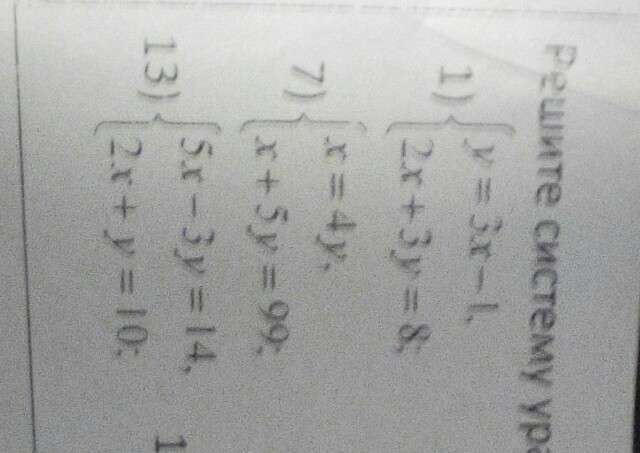 Решите систему ура
1) { y = 3x − 1,
2x + 3y = 8;
7) { x = 4y,
x + 5y = 99;
13) { 5x − 3y = 14,
2x + y = 10;
1